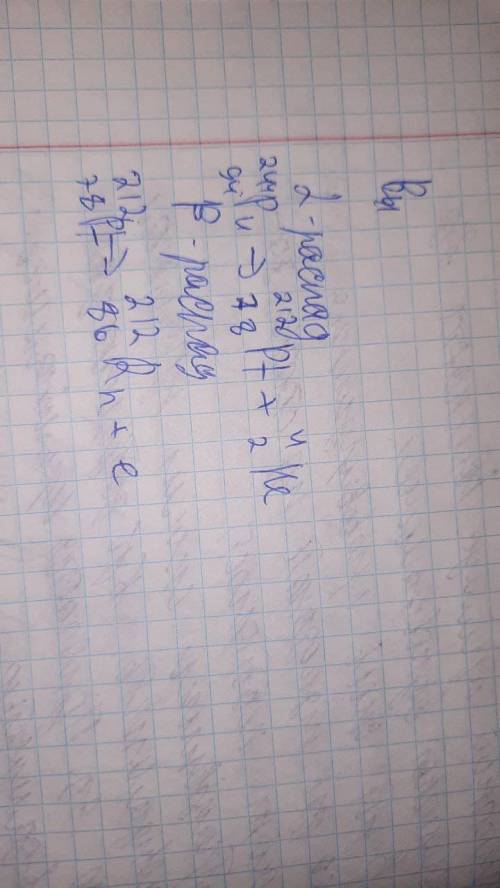 α-распад
244 94 Pu → 212 78 Pt + 4 2 He
β-распад
212 78 Pt → 212 86 Rn + e